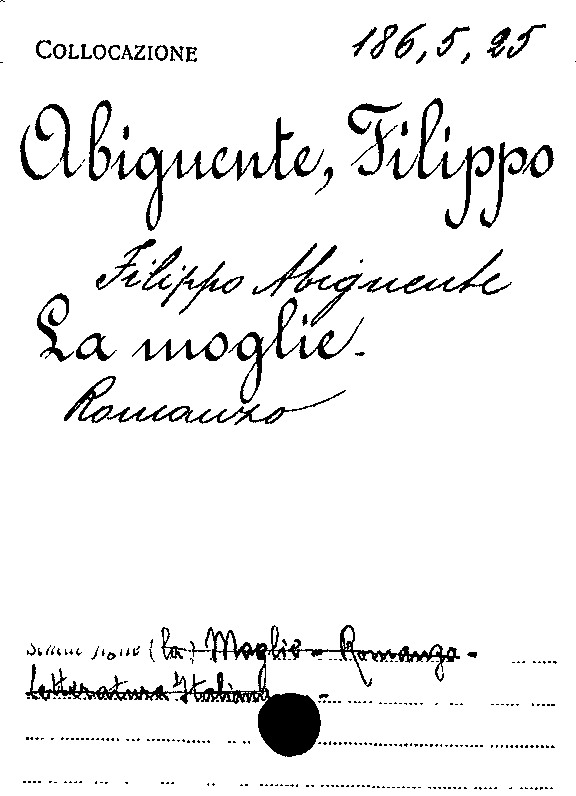 COLLOCAZIONE 186, 5, 25
Abignente, Filippo
Filippo Abignente
La moglie.
Romanzo
(la) Moglie - Romanzo -
Letteratura Italiana -